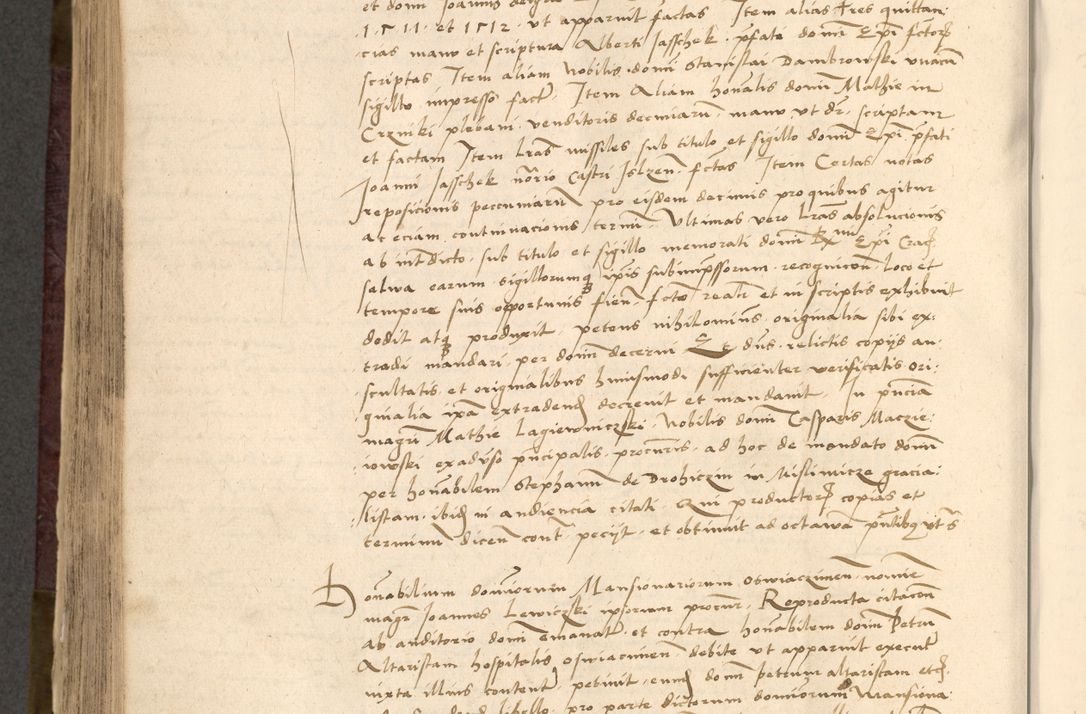 et domi Joannis
1511 et 1512 ut apparuit factas Item alias tres quittan:
cias manu et scriptura Alberti Jasschek pfati domi Epi fctor
scriptas Item aliam Nobilis domi Stanislai Dambrowski unacu
sigillo impresso fact Item Aliam honalis domi Mathie in
Crziniki plebani venditoris decimiaru manu ut dr scriptam
et factam Item lras missiles sub titulo et sigillo domi Epi pfati
Joanni Jasschek nrio Castri Ilzen fctas Item Certas notas
reposicionis peccuniaru pro eisdem decimis pro quibus agitur
ac eciam continuacionis termi Ultimas vero lras absolucionis
ab intdicto sub titulo et sigillo memorati domi Epi Crac
salva earum sigillorumq ipis subimpssorum recognicon loco et
tempore suis oportunis fien fcto realr et in scriptis exhibuit
dedit atq produxit petens nihilominus originalia sibi ex:
tradi mandari per domi decerni Et dns relictis copijs au:
scultatis et originalibus huiusmodi sufficienter verificatis ori:
ginalia ipa extradend decrevit et mandavit In pncia
magri Mathie Lagiewniczki Nobilis domi Casparis Maczie:
iowski exadvso pncipalis procuris ad hoc de mandato domi
per honabilem Stephanu de Drohiczin in Mislimicze gracia:
listam ibid in audiencia citati Qui productor copias et
terminu dicen cont pecijt et obtinuit ad octava pntibq ut s
Honabilium dominorum Mansionariorum Oswiaczimen nomine
magr Joannes Lewiczki ipsorum procur Reproducta citacon
ab auditorio domi emanat et contra honabilem domi Petru
Altaristam hospitalis Oswiacimen debite ut apparuit execut
iuxta illius content petivit eund domi petrum altaristam etc
libello pro parte dictorum dominorum Mansiona: